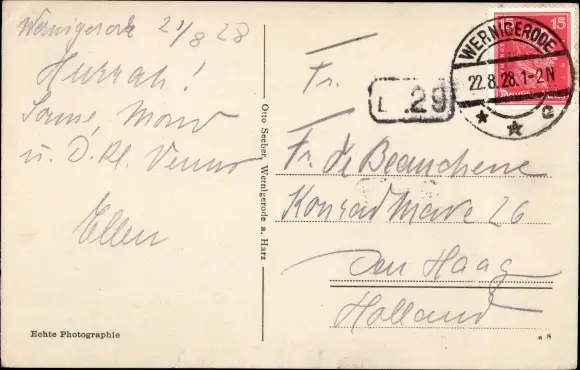 Wernigerode 21/8 28
Hurrah!
Sonne, Mond
u. D. Kl. Venus
Ellen
Echte Photographie
Otto Seeber, Wernigerode a. Harz
15 15
WERNIGERODE
22.8.28.1-2N
* * c
29
Fr.
Fr. de Beauchene
Konrad 26
Den Haag
Holland
a 8